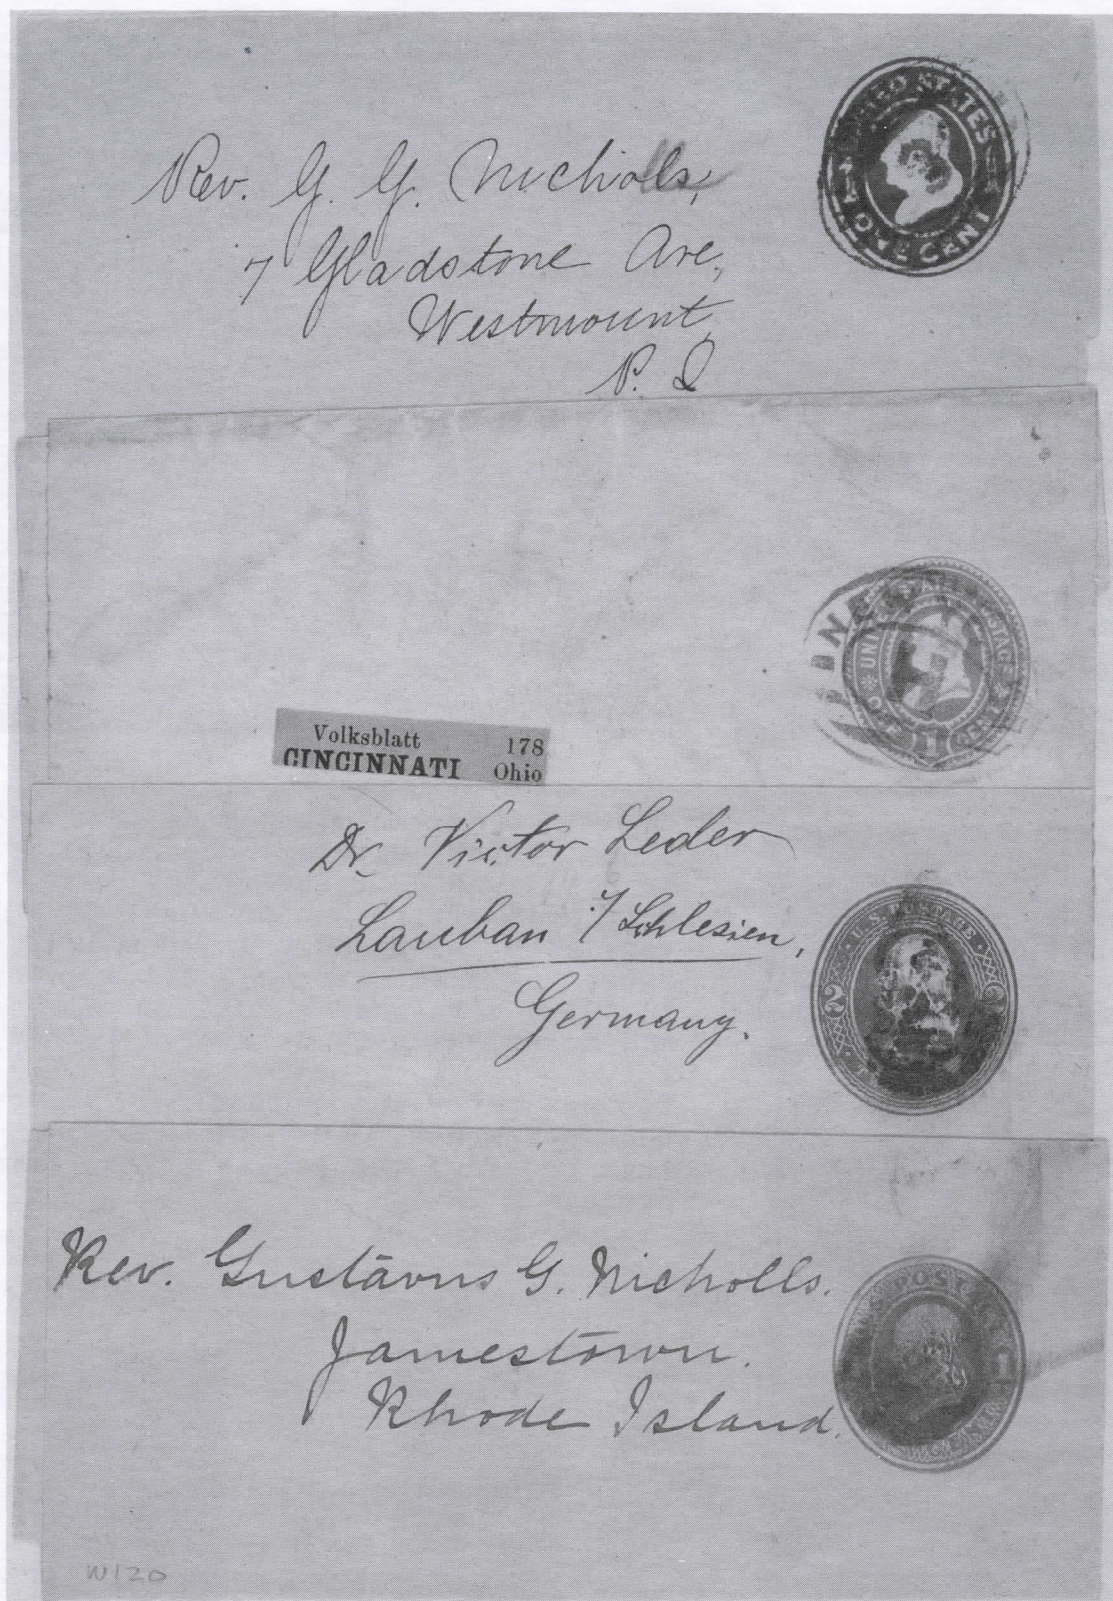 Rev. G. G. Nicholls,
7 Gladstone Ave,
Westmount
P. Q
UNITED STATES
ONE CENT
UNITED STATES POSTAGE
1
Volksblatt 178
CINCINNATI Ohio
Dr. Victor Leder
Lauban i/ Schlesien,
Germany.
U.S. POSTAGE
2
Rev. Gustavus G. Nicholls.
Jamestown.
Rhode Island.
U.S. POSTAGE
1
W120